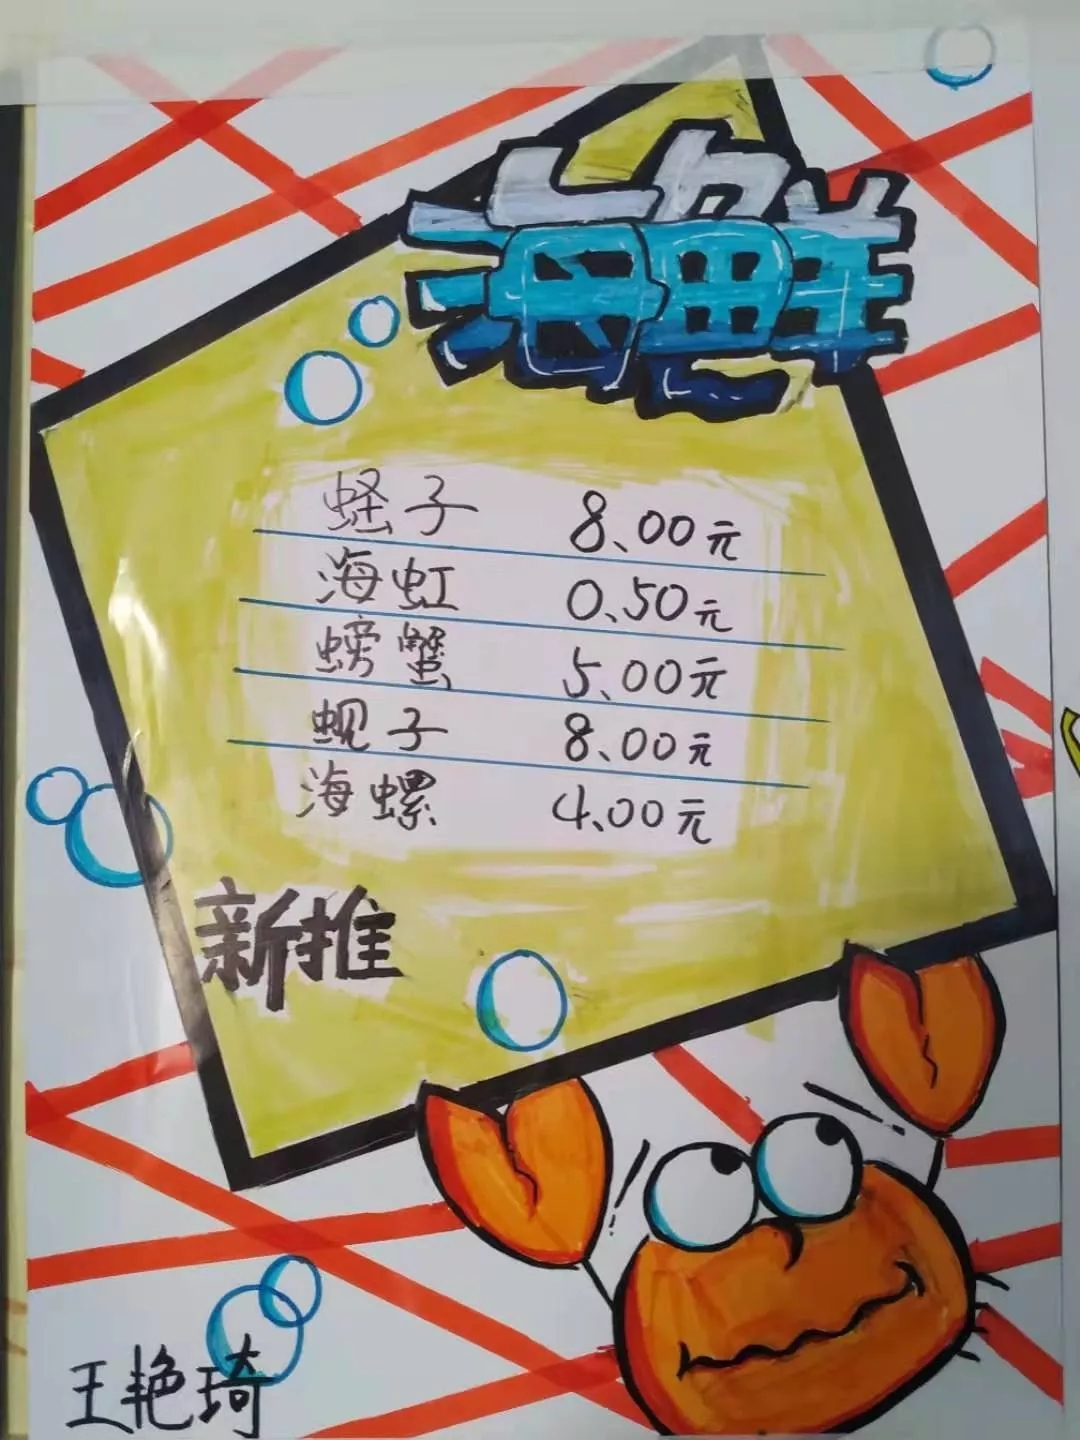 海鲜
蛏子 8.00元
海虹 0.50元
螃蟹 5.00元
蚬子 8.00元
海螺 4.00元
新推
王艳琦